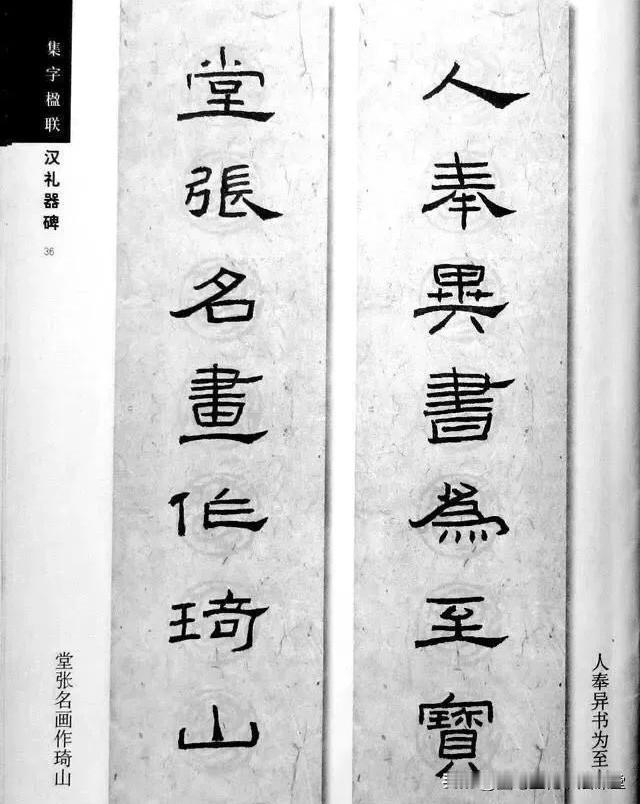 集字楹联
汉礼器碑
36
人奉異書為至寶
堂張名畫作琦山
人奉异书为至
堂张名画作琦山